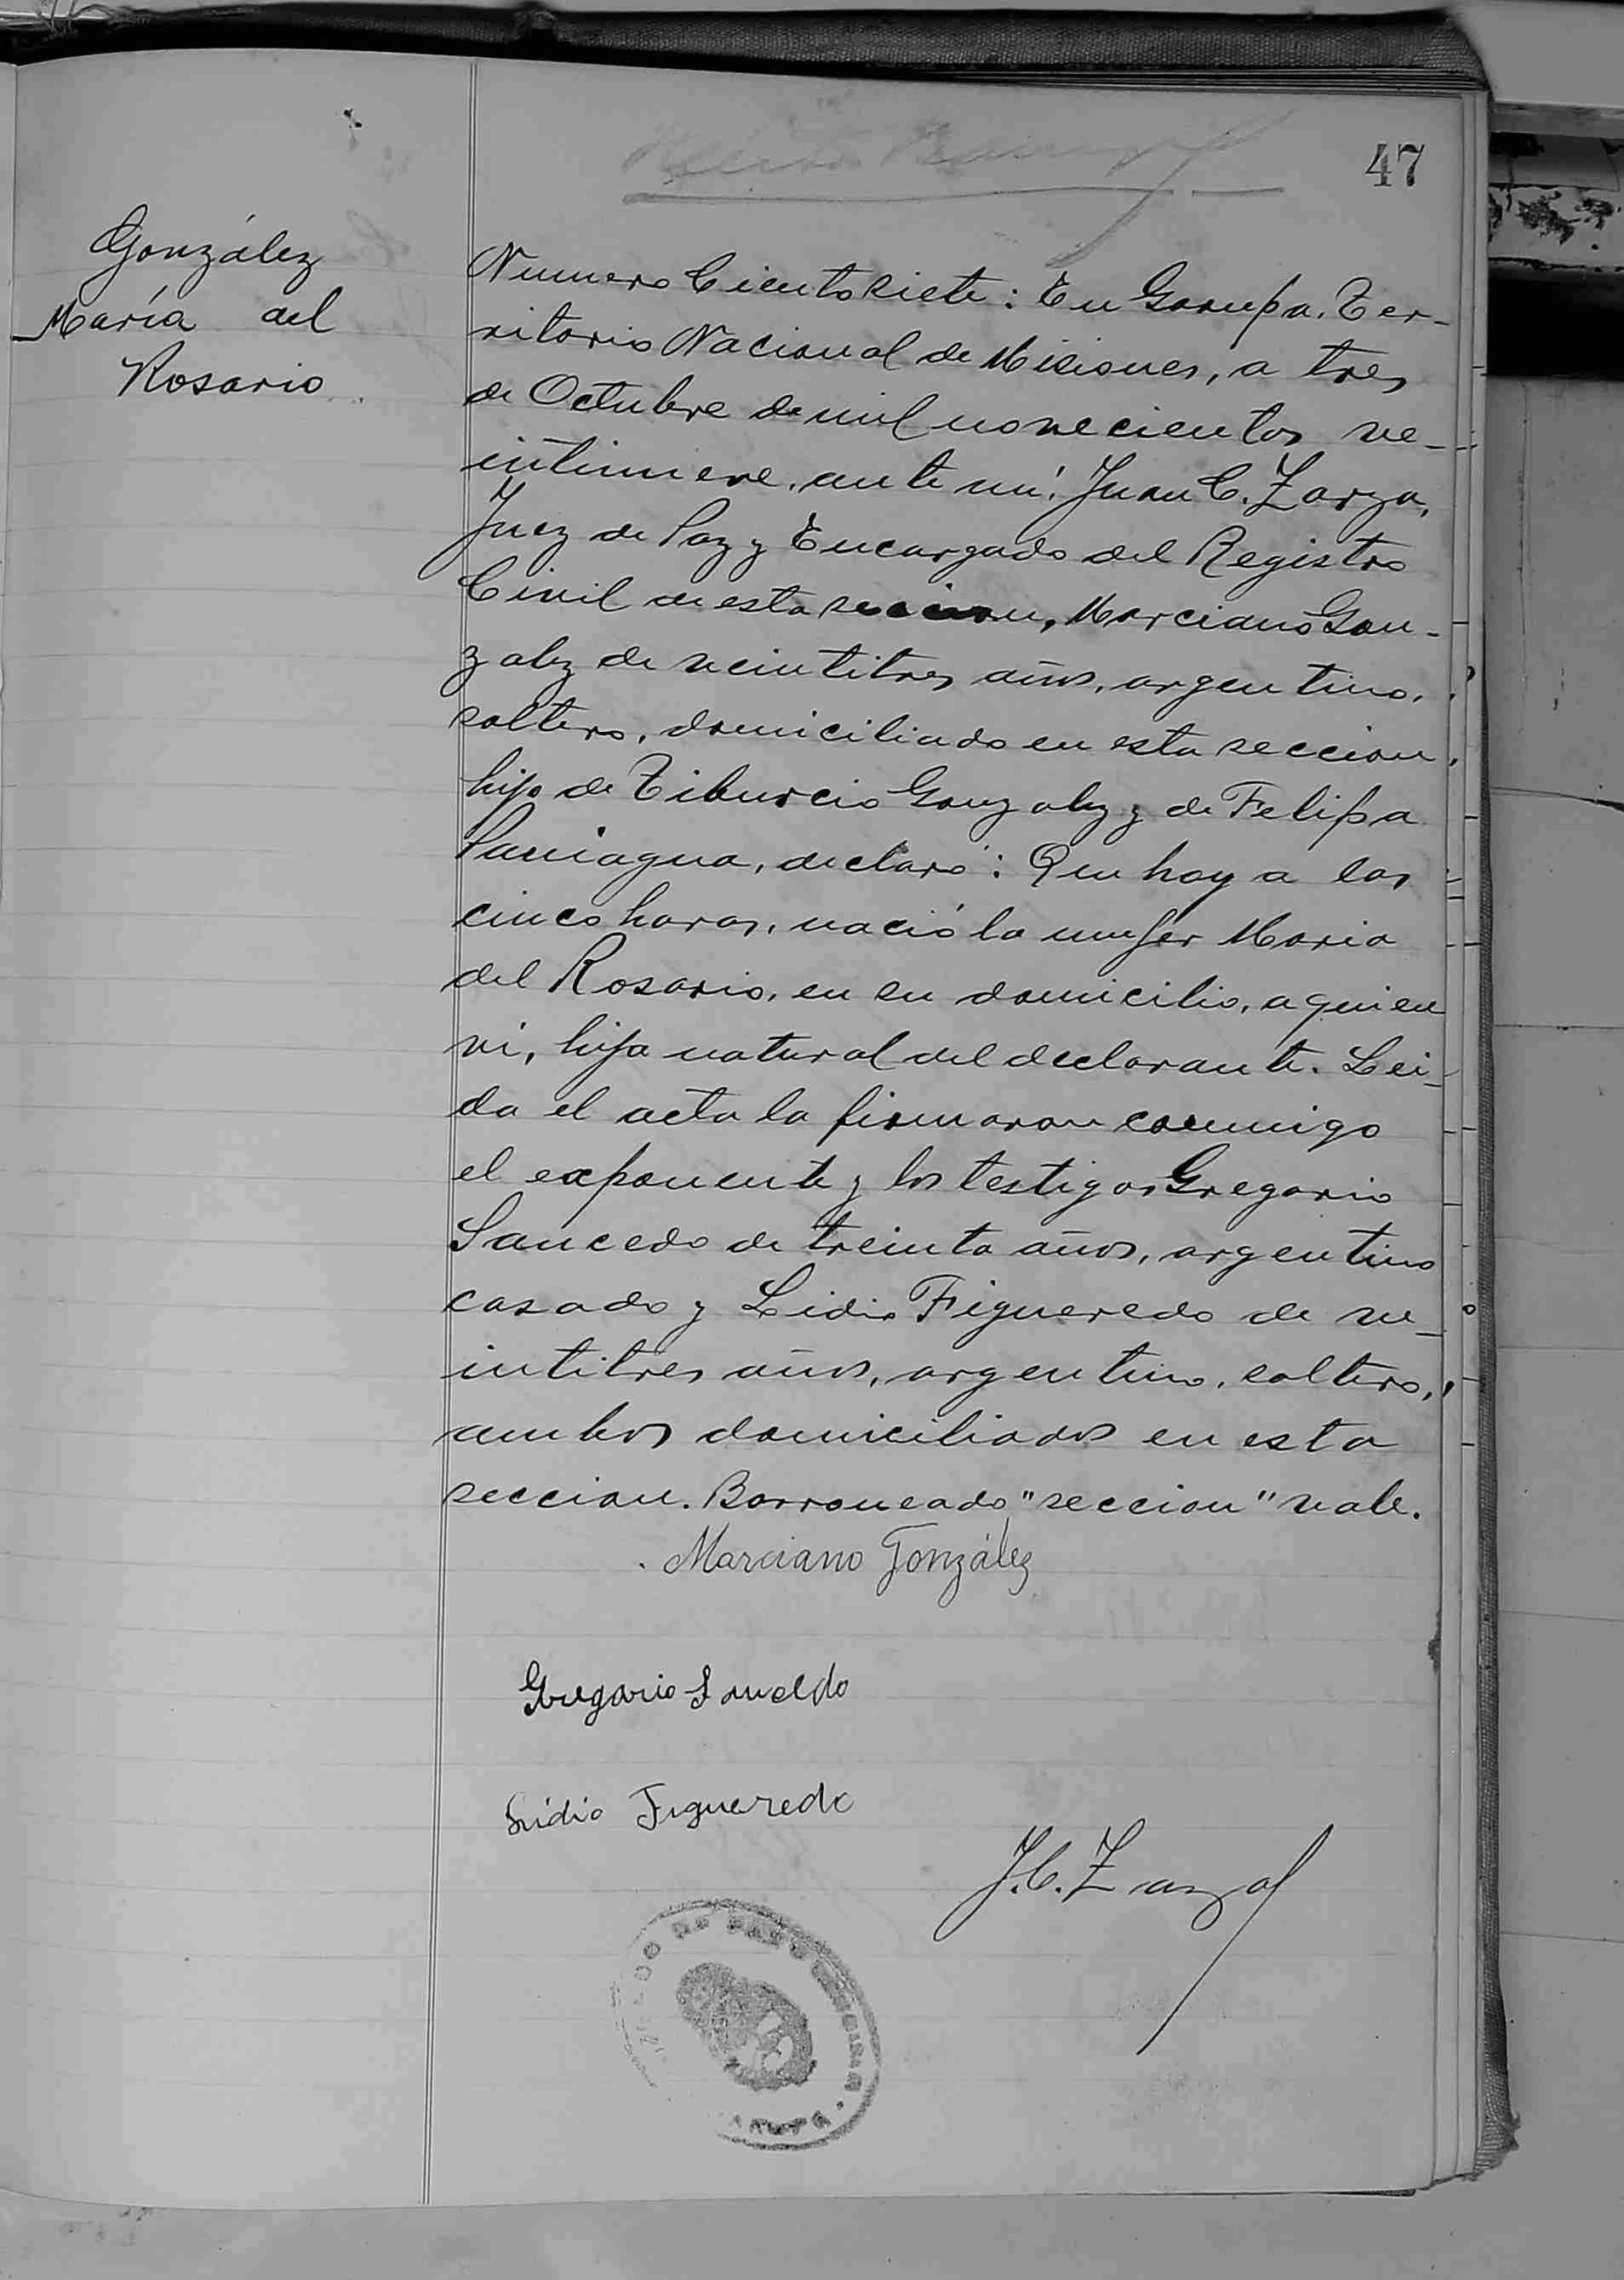 47
González
María del
Rosario
Numero Ciento siete: En Garupa, Ter-
ritorio Nacional de Misiones, a tres
de Octubre de mil novecientos ve-
intinueve, ante mí, Juan C. Zarza,
Juez de Paz y Encargado del Registro
Civil de esta seccion, Marciano Gon-
zalez de veintitres años, argentino,
soltero, domiciliado en esta seccion,
hijo de Tiburcio Gonzalez y de Felipa
Paniagua, declaró: Que hoy a las
cinco horas, nació la mujer Maria
del Rosario, en su domicilio, a quien
vi, hija natural del declarante. Lei-
da el acta la firmaron conmigo
el exponente y los testigos Gregorio
Saucedo de treinta años, argentino
casado y Lidio Figueredo de ve-
intitres años, argentino, soltero,
ambos domiciliados en esta
seccion. Borroneado "seccion" vale.
Marciano González
Gregorio
Lidio Figueredo
J. C. Zarza